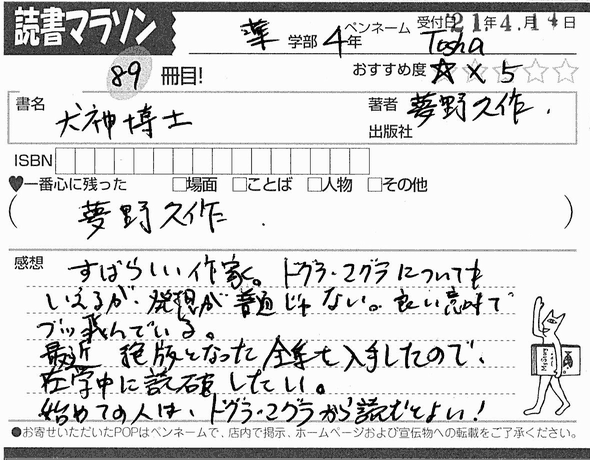 読書マラソン
薬 学部 4年
ペンネーム Tosha
受付日 21年4.14日
89 冊目!
おすすめ度 ☆×5☆☆
書名 犬神博士
著者 夢野久作.
出版社
ISBN
♥一番心に残った □場面 □ことば □人物 □その他
( 夢野久作. )
感想 すばらしい作家。ドグラ・マグラについても
いえるが、発想が普通じゃない。良い意味で
ブッ飛んでいる。
最近 絶版となった全集を入手したので、
在学中に読破したい。
始めての人は、ドグラ・マグラから読むとよい!
●お寄せいただいたPOPはペンネームで、店内で掲示、ホームページおよび宣伝物への転載をご了承ください。